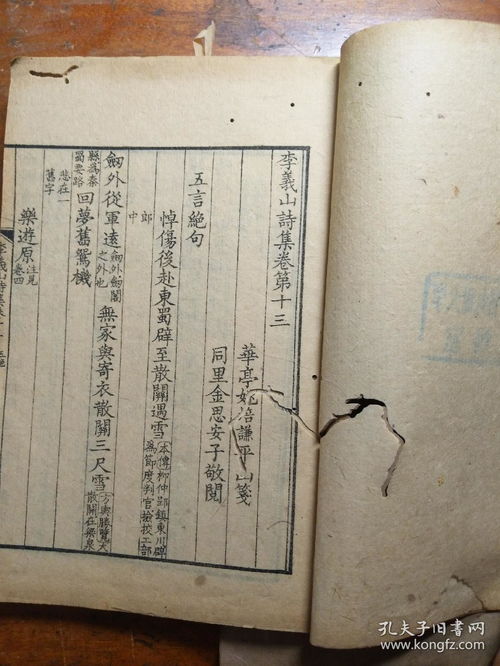 李義山詩集卷第十三
華亭姚培謙平山箋
同里金思安子敬閱
五言絕句
悼傷後赴東蜀辟至散關遇雪 本傳柳仲郢鎮東川辟爲節度判官檢校工部
郎中
劔外從軍遠 劔外劔閣之外也 無家與寄衣散關三尺雪 方輿勝覽大散關在梁泉
縣爲秦蜀要路 回夢舊鴛機
悲在一舊字
樂遊原 注見卷四
李義山詩集
孔夫子旧书网
www.kongfz.com